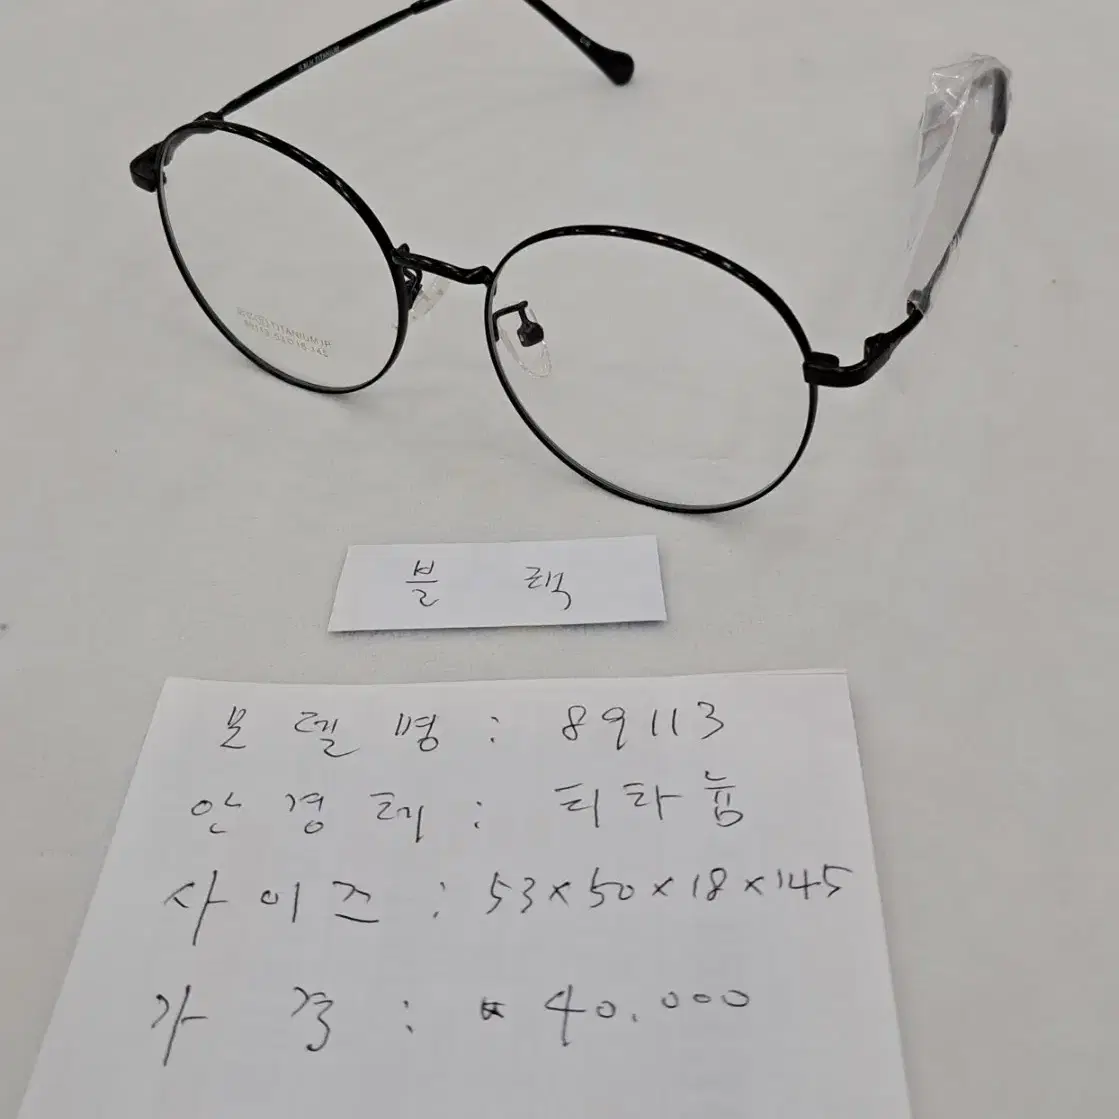 TITANIUM
블랙
모델명 : 89113
안경테 : 티타늄
사이즈 : 53x50x18x145
가격 : ₩ 40.000